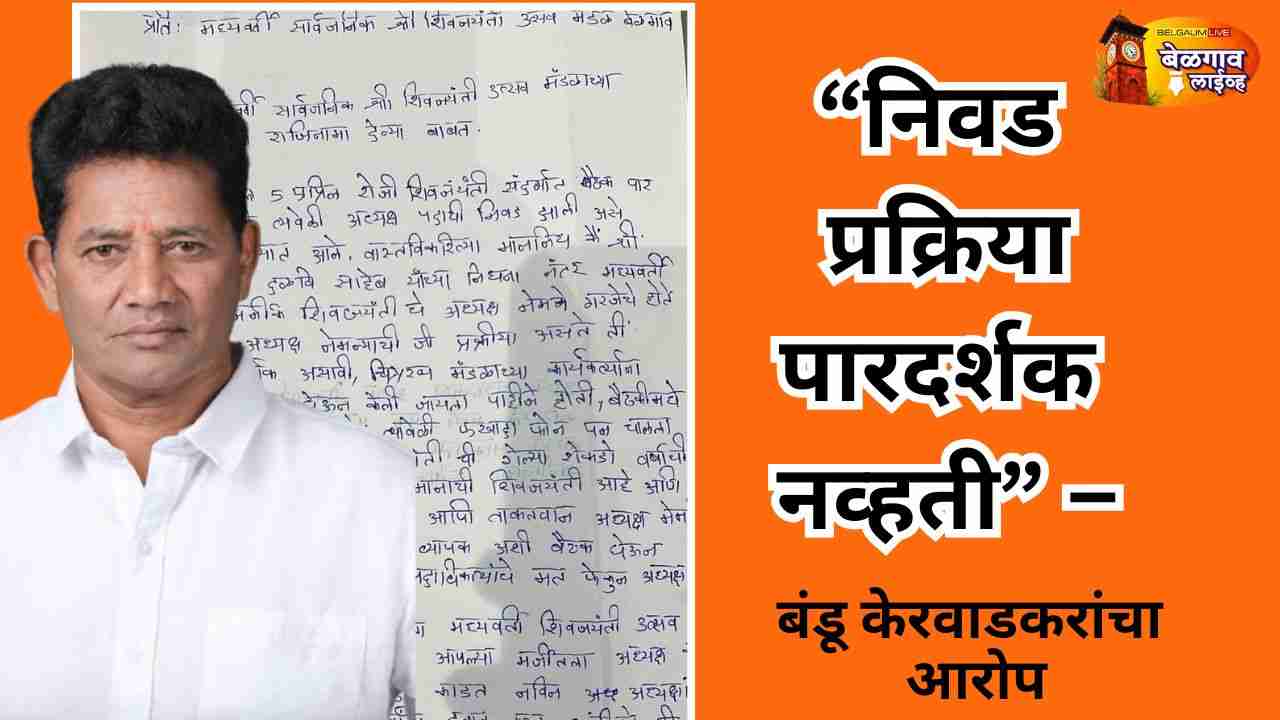 प्रति: मध्यवर्ती सार्वजनिक श्री शिवजयंती उत्सव मंडळ बेळगांव
सार्वजनिक श्री शिवजयंती उत्सव मंडळाच्या
राजिनामा देण्या बाबत.
5 एप्रिल रोजी शिवजंयंती संदर्भात बैठक पार
त्यवेळी अध्यक्ष पदाची निवड झाली असे
यात आले. वास्तविकरित्या माननिय कै श्री
दळवि साहेब यांच्या निधना नंतर मध्यवर्ती
शिवजयंती चे अध्यक्ष नेमने गरजेचे होते
अध्यक्ष नेमन्याची जी प्रक्रीया असते ती
असावी, चित्ररथ मंडळाच्या कार्यकर्त्यांना
घेऊन केली जायला पाहीजे होती, बैठकीमध्ये
त्यावेळी एखादा फोन पन चालला
ती ची गेल्या शेकडो वर्षाची
मानाची शिवजयंती आहे आणि
आपी ताकतवान अध्यक्ष नेम
व्यापक अशी बैठक घेऊन
मत ऐकुन अध्यक्ष
मध्यवर्ती शिवजयंती उत्सव
आपल्या मर्जीतला अध्यक्ष
काढत नविन अध्यक्षां
“निवड
प्रक्रिया
पारदर्शक
नव्हती” –
बंडू केरवाडकरांचा
आरोप
BELGAUM LIVE
बेळगाव
लाईव्ह